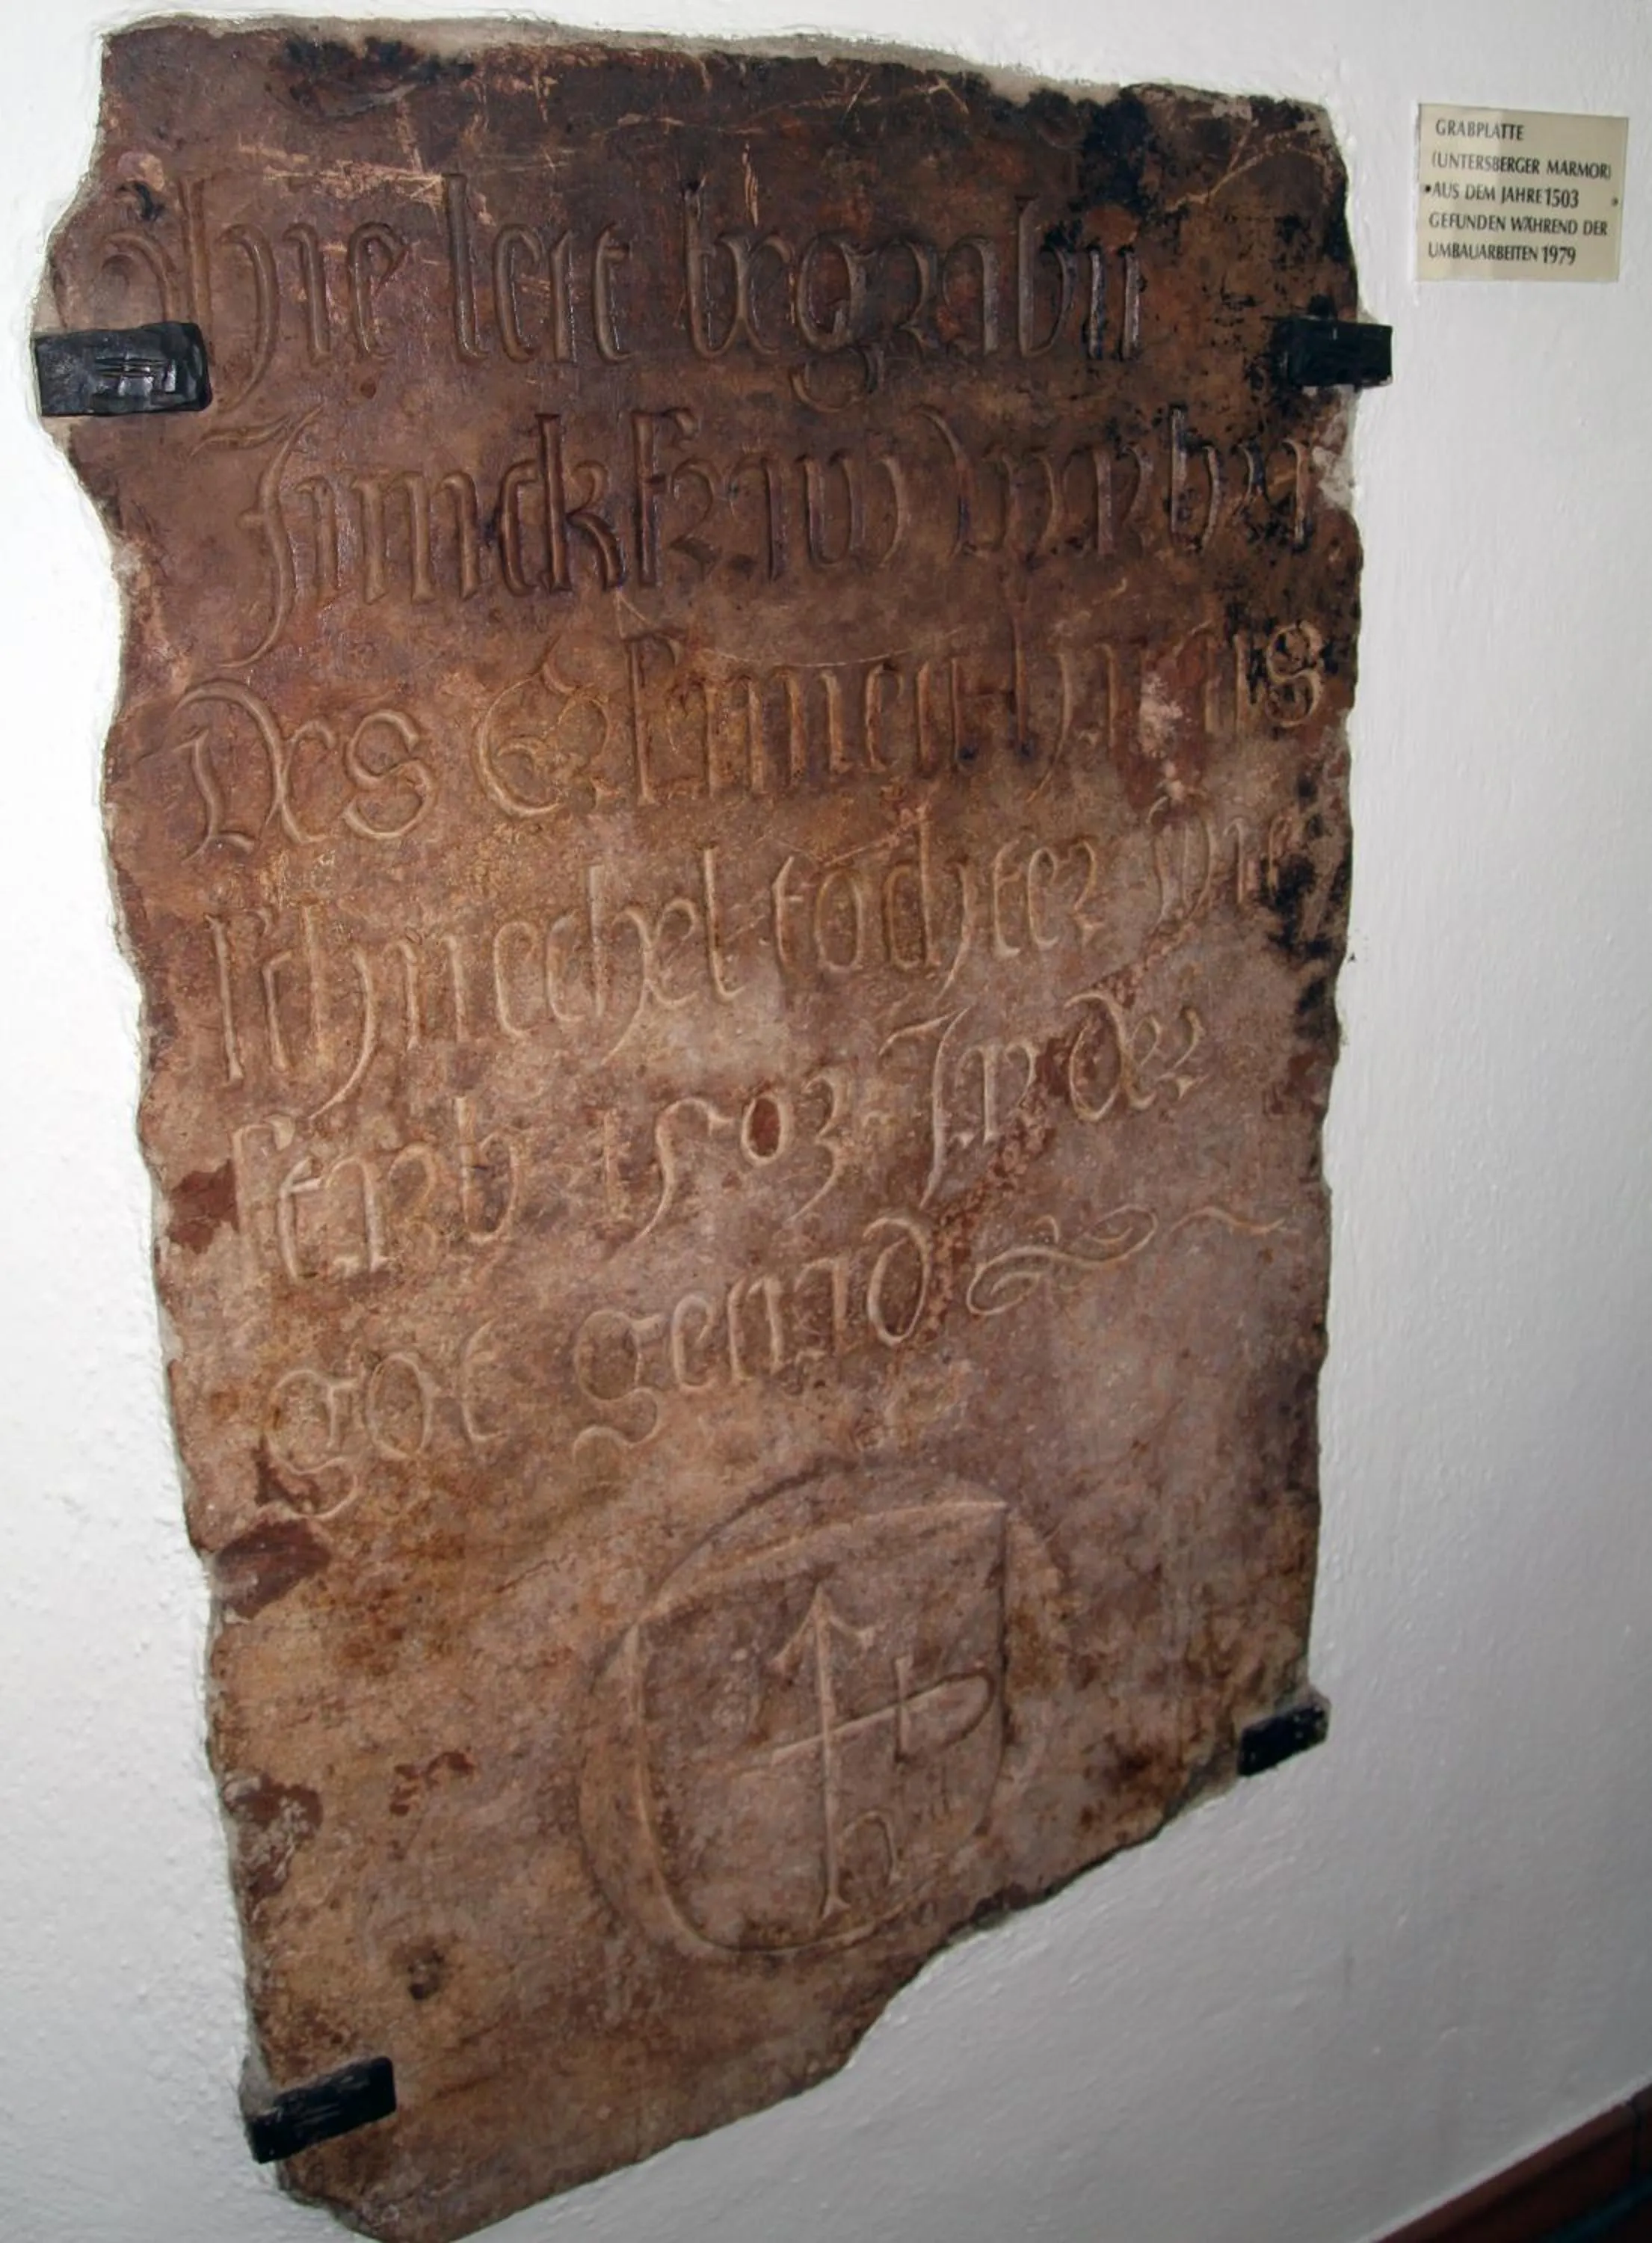 hie leit begrabn
Junckfraw
Des Ersamen hans
schnechel tochter die
starb 1503 In der
got genad
GRABPLATTE
(UNTERSBERGER MARMOR)
AUS DEM JAHRE 1503
GEFUNDEN WÄHREND DER
UMBAUARBEITEN 1979